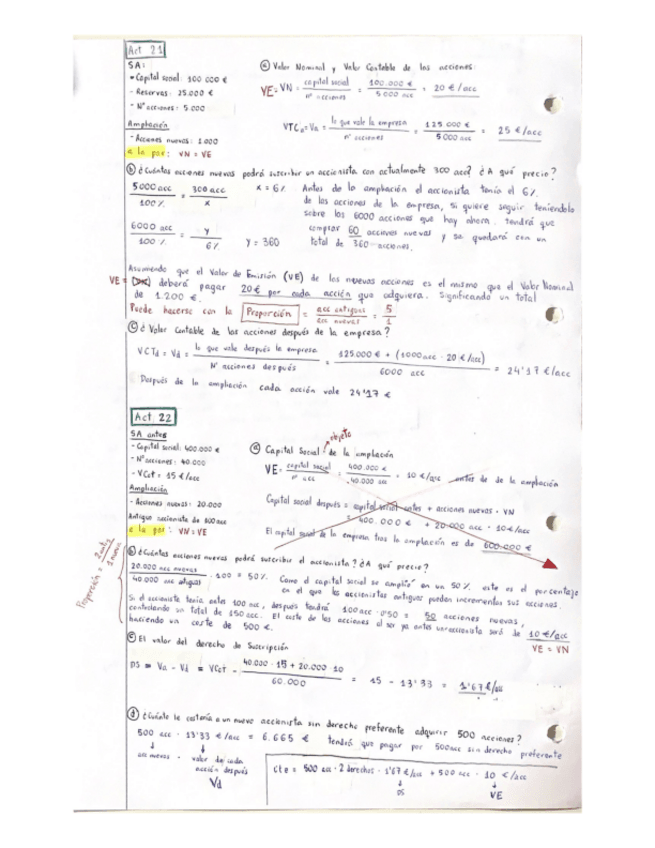 Act 21
SA:
- Capital social: 100 000 €
- Reservas: 25.000 €
- Nº acciones: 5.000
Ampliación
- Acciones nuevas: 1.000
a la par: VN = VE
a) Valor Nominal y Valor Contable de las acciones:
VE = VN = capital social / nº acciones = 100.000 € / 5000 acc = 20 €/acc
VTCa = Va = lo que vale la empresa / nº acciones = 125.000 € / 5000 acc = 25 €/acc
b) ¿Cuántas acciones nuevas podrá suscribir un accionista con actualmente 300 acc? ¿A qué precio?
5000 acc / 100% = 300 acc / x x = 6%
6000 acc / 100% = y / 6% y = 360
Antes de la ampliación el accionista tenía el 6%
de las acciones de la empresa, si quiere seguir teniéndolo
sobre las 6000 acciones que hay ahora tendrá que
comprar 60 acciones nuevas y se quedará con un
total de 360 acciones.
Asumiendo que el Valor de Emisión (VE) de las nuevas acciones es el mismo que el Valor Nominal
VE = deberá pagar 20€ por cada acción que adquiera. Significando un total
de 1.200 €.
Puede hacerse con la Proporción = acc antiguas / acc nuevas = 5 / 1
c) ¿Valor Contable de las acciones después de la empresa?
VCTd = Vd = lo que vale después la empresa / Nº acciones después = 125.000 € + (1000 acc · 20 €/acc) / 6000 acc = 24'17 €/acc
Después de la ampliación cada acción vale 24'17 €
Act 22
SA antes
- Capital social: 400.000 €
- Nº acciones: 40.000
- VCet = 15 €/acc
Ampliación
- Acciones nuevas: 20.000
Antiguo accionista de 100 acc
a la par: VN = VE
objeto
a) Capital Social de la ampliación
VE = capital social / nº acc = 400.000 € / 40.000 acc = 10 €/acc antes de de la ampliación
Capital social después = capital social antes + acciones nuevas · VN
= 400.000 € + 20.000 acc · 10 €/acc
El capital social de la empresa tras la ampliación es de 600.000 €
Proporción = 2 antig / 1 nueva
b) ¿Cuántas acciones nuevas podrá suscribir el accionista? ¿A qué precio?
20.000 acc nuevas / 40.000 acc antiguas · 100 = 50% Como el capital social se amplió en un 50% este es el porcentaje
en el que los accionistas antiguos pueden incrementar sus acciones.
Si el accionista tenía antes 100 acc, después tendrá 100 acc · 0'50 = 50 acciones nuevas,
controlando un total de 150 acc. El coste de las acciones al ser ya antes un accionista será de 10 €/acc
haciendo un coste de 500 €.
VE = VN
c) El valor del derecho de Suscripción
DS = Va - Vd = VCet - 40.000 · 15 + 20.000 · 10 / 60.000 = 15 - 13'33 = 1'67 €/acc
d) ¿Cuánto le costaría a un nuevo accionista sin derecho preferente adquirir 500 acciones?
500 acc · 13'33 €/acc = 6.665 € tendrá que pagar por 500 acc sin derecho preferente
acc nuevas · valor de cada
acción después
Vd
Cte = 500 acc · 2 derechos · 1'67 €/acc + 500 acc · 10 €/acc
DS VE